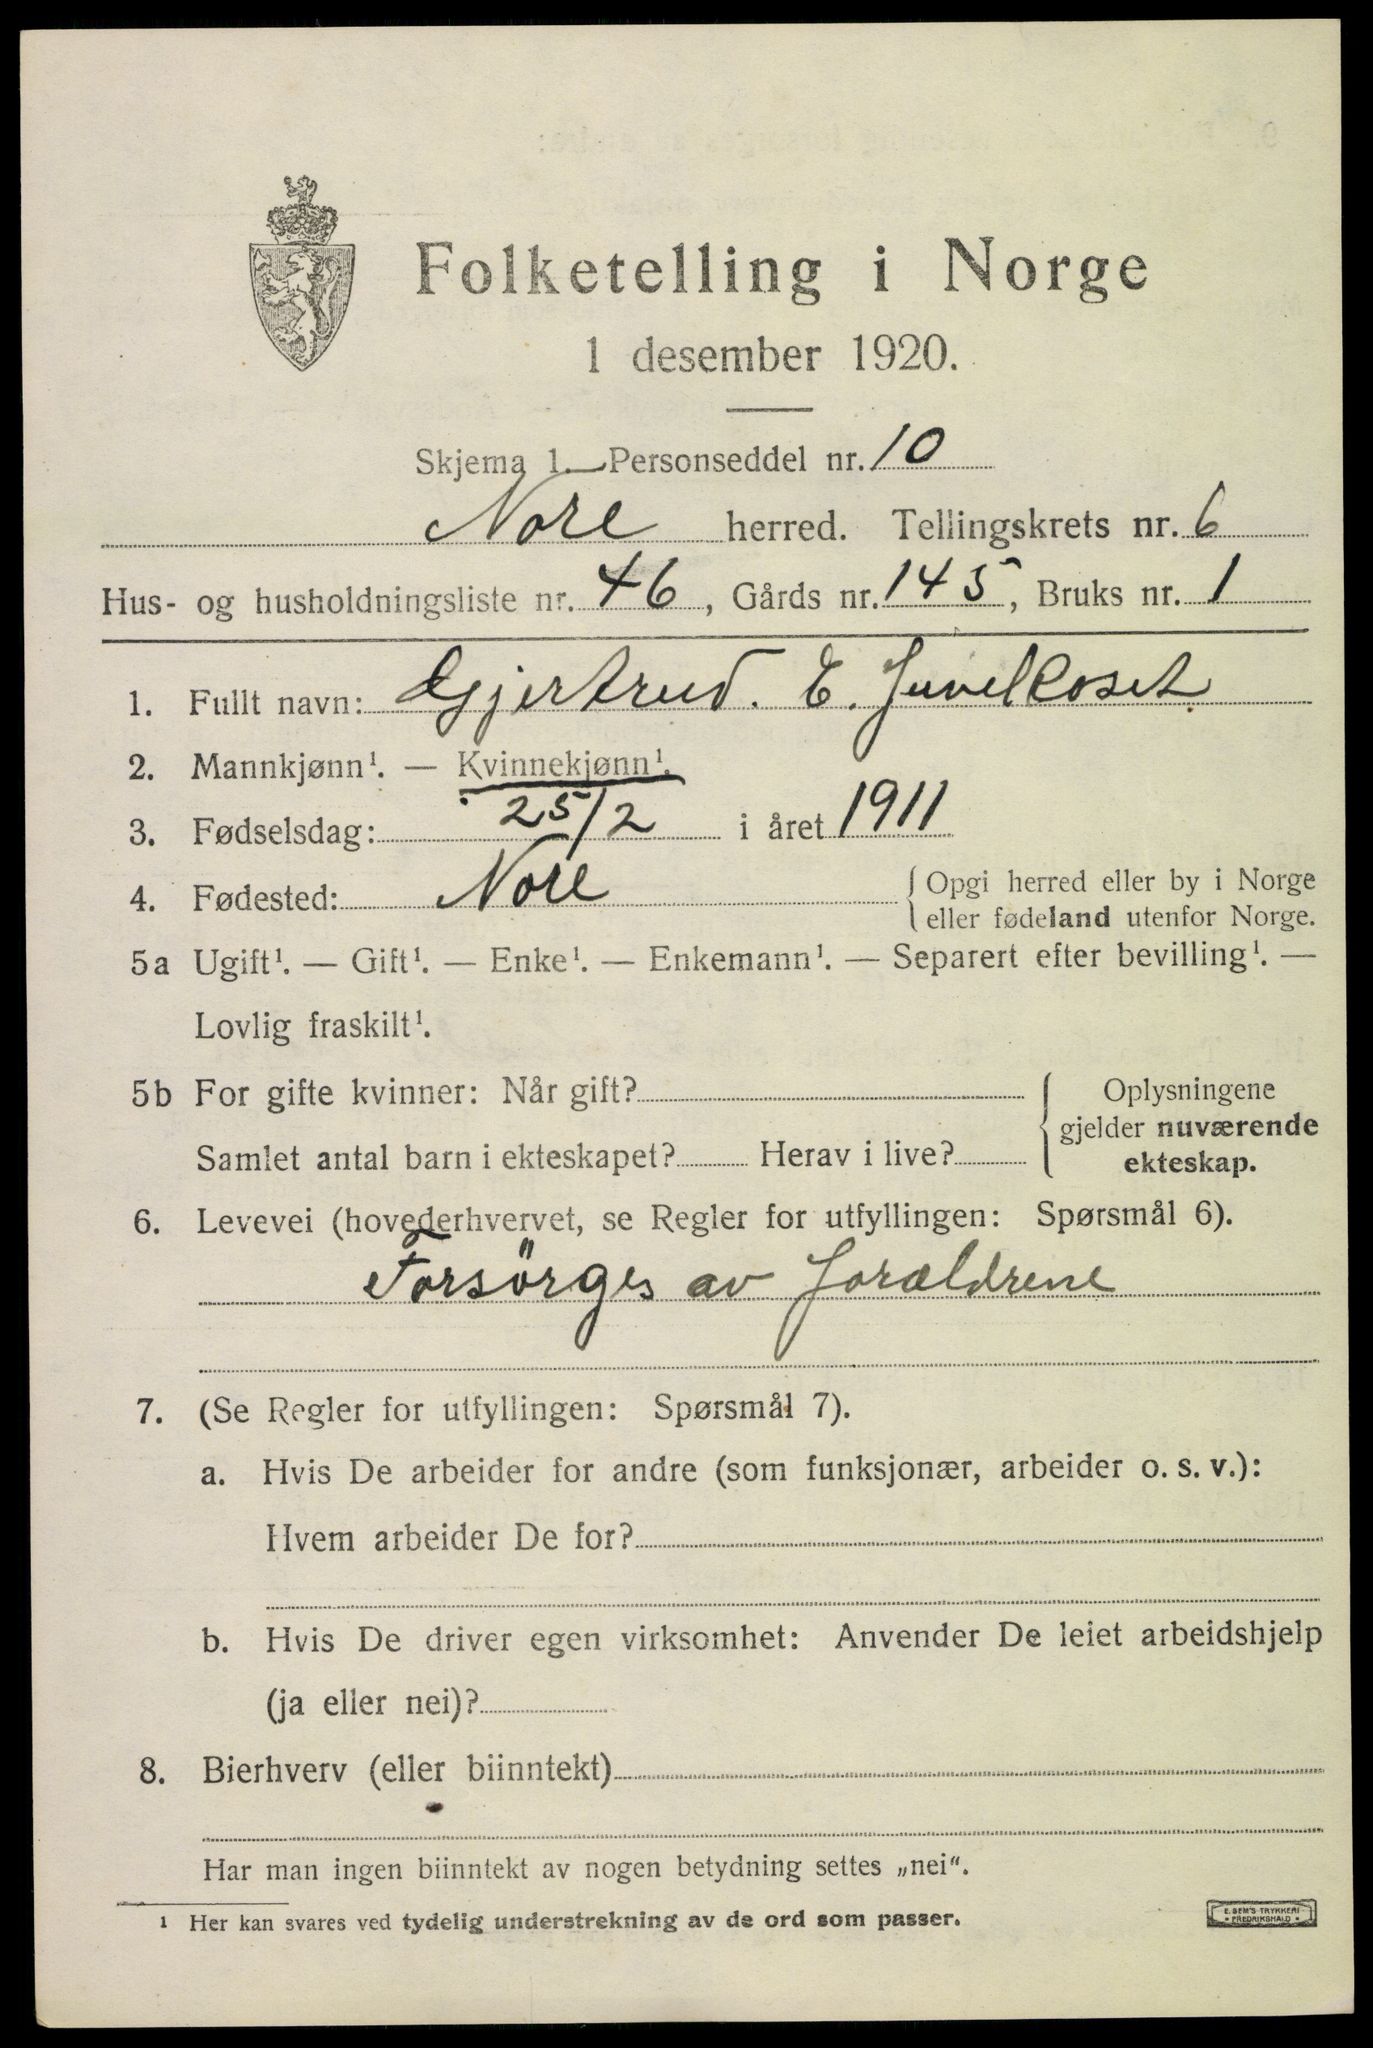 Folketelling i Norge
1 desember 1920.
Skjema 1. Personseddel nr. 10
Nore herred. Tellingskrets nr. 6
Hus- og husholdningsliste nr. 46, Gårds nr. 145, Bruks nr. 1
1. Fullt navn: Gjertrud. E. Juvelkoset
2. Mannkjønn¹. — Kvinnekjønn¹.
3. Fødselsdag: 25/2 i året 1911
4. Fødested: Nore { Opgi herred eller by i Norge
eller fødeland utenfor Norge.
5a Ugift¹. — Gift¹. — Enke¹. — Enkemann¹. — Separert efter bevilling¹. —
Lovlig fraskilt¹.
5b For gifte kvinner: Når gift? { Oplysningene
gjelder nuværende
Samlet antal barn i ekteskapet? Herav i live? ekteskap.
6. Levevei (hovederhvervet, se Regler for utfyllingen: Spørsmål 6).
Forsörges av forældrene
7. (Se Regler for utfyllingen: Spørsmål 7).
a. Hvis De arbeider for andre (som funksjonær, arbeider o. s. v.):
Hvem arbeider De for?
b. Hvis De driver egen virksomhet: Anvender De leiet arbeidshjelp
(ja eller nei)?
8. Bierhverv (eller biinntekt)
Har man ingen biinntekt av nogen betydning settes „nei“.
¹ Her kan svares ved tydelig understrekning av de ord som passer.
E. SEM'S TRYKKERI
• FREDRIKSHALD •